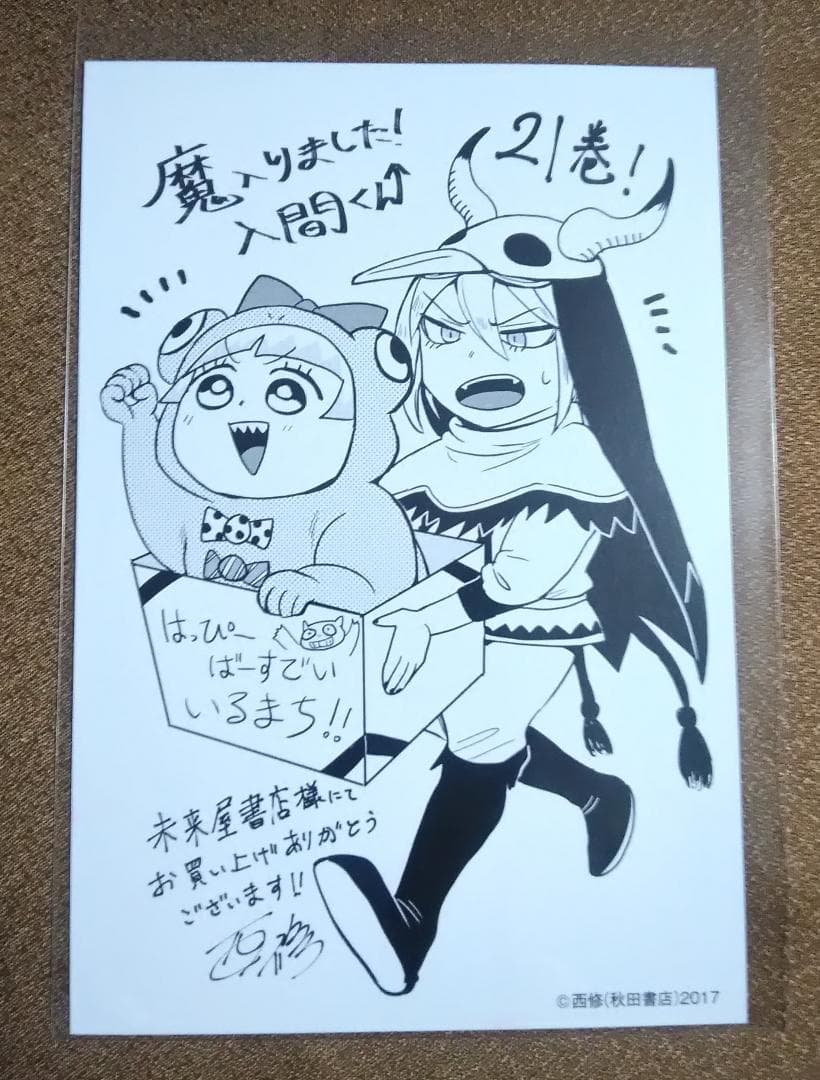 魔入りました!
入間くん
21巻!
はっぴー
ばーすでい
いるまち!!
未来屋書店様にて
お買い上げありがとう
ございます!!
西修
©西修(秋田書店)2017